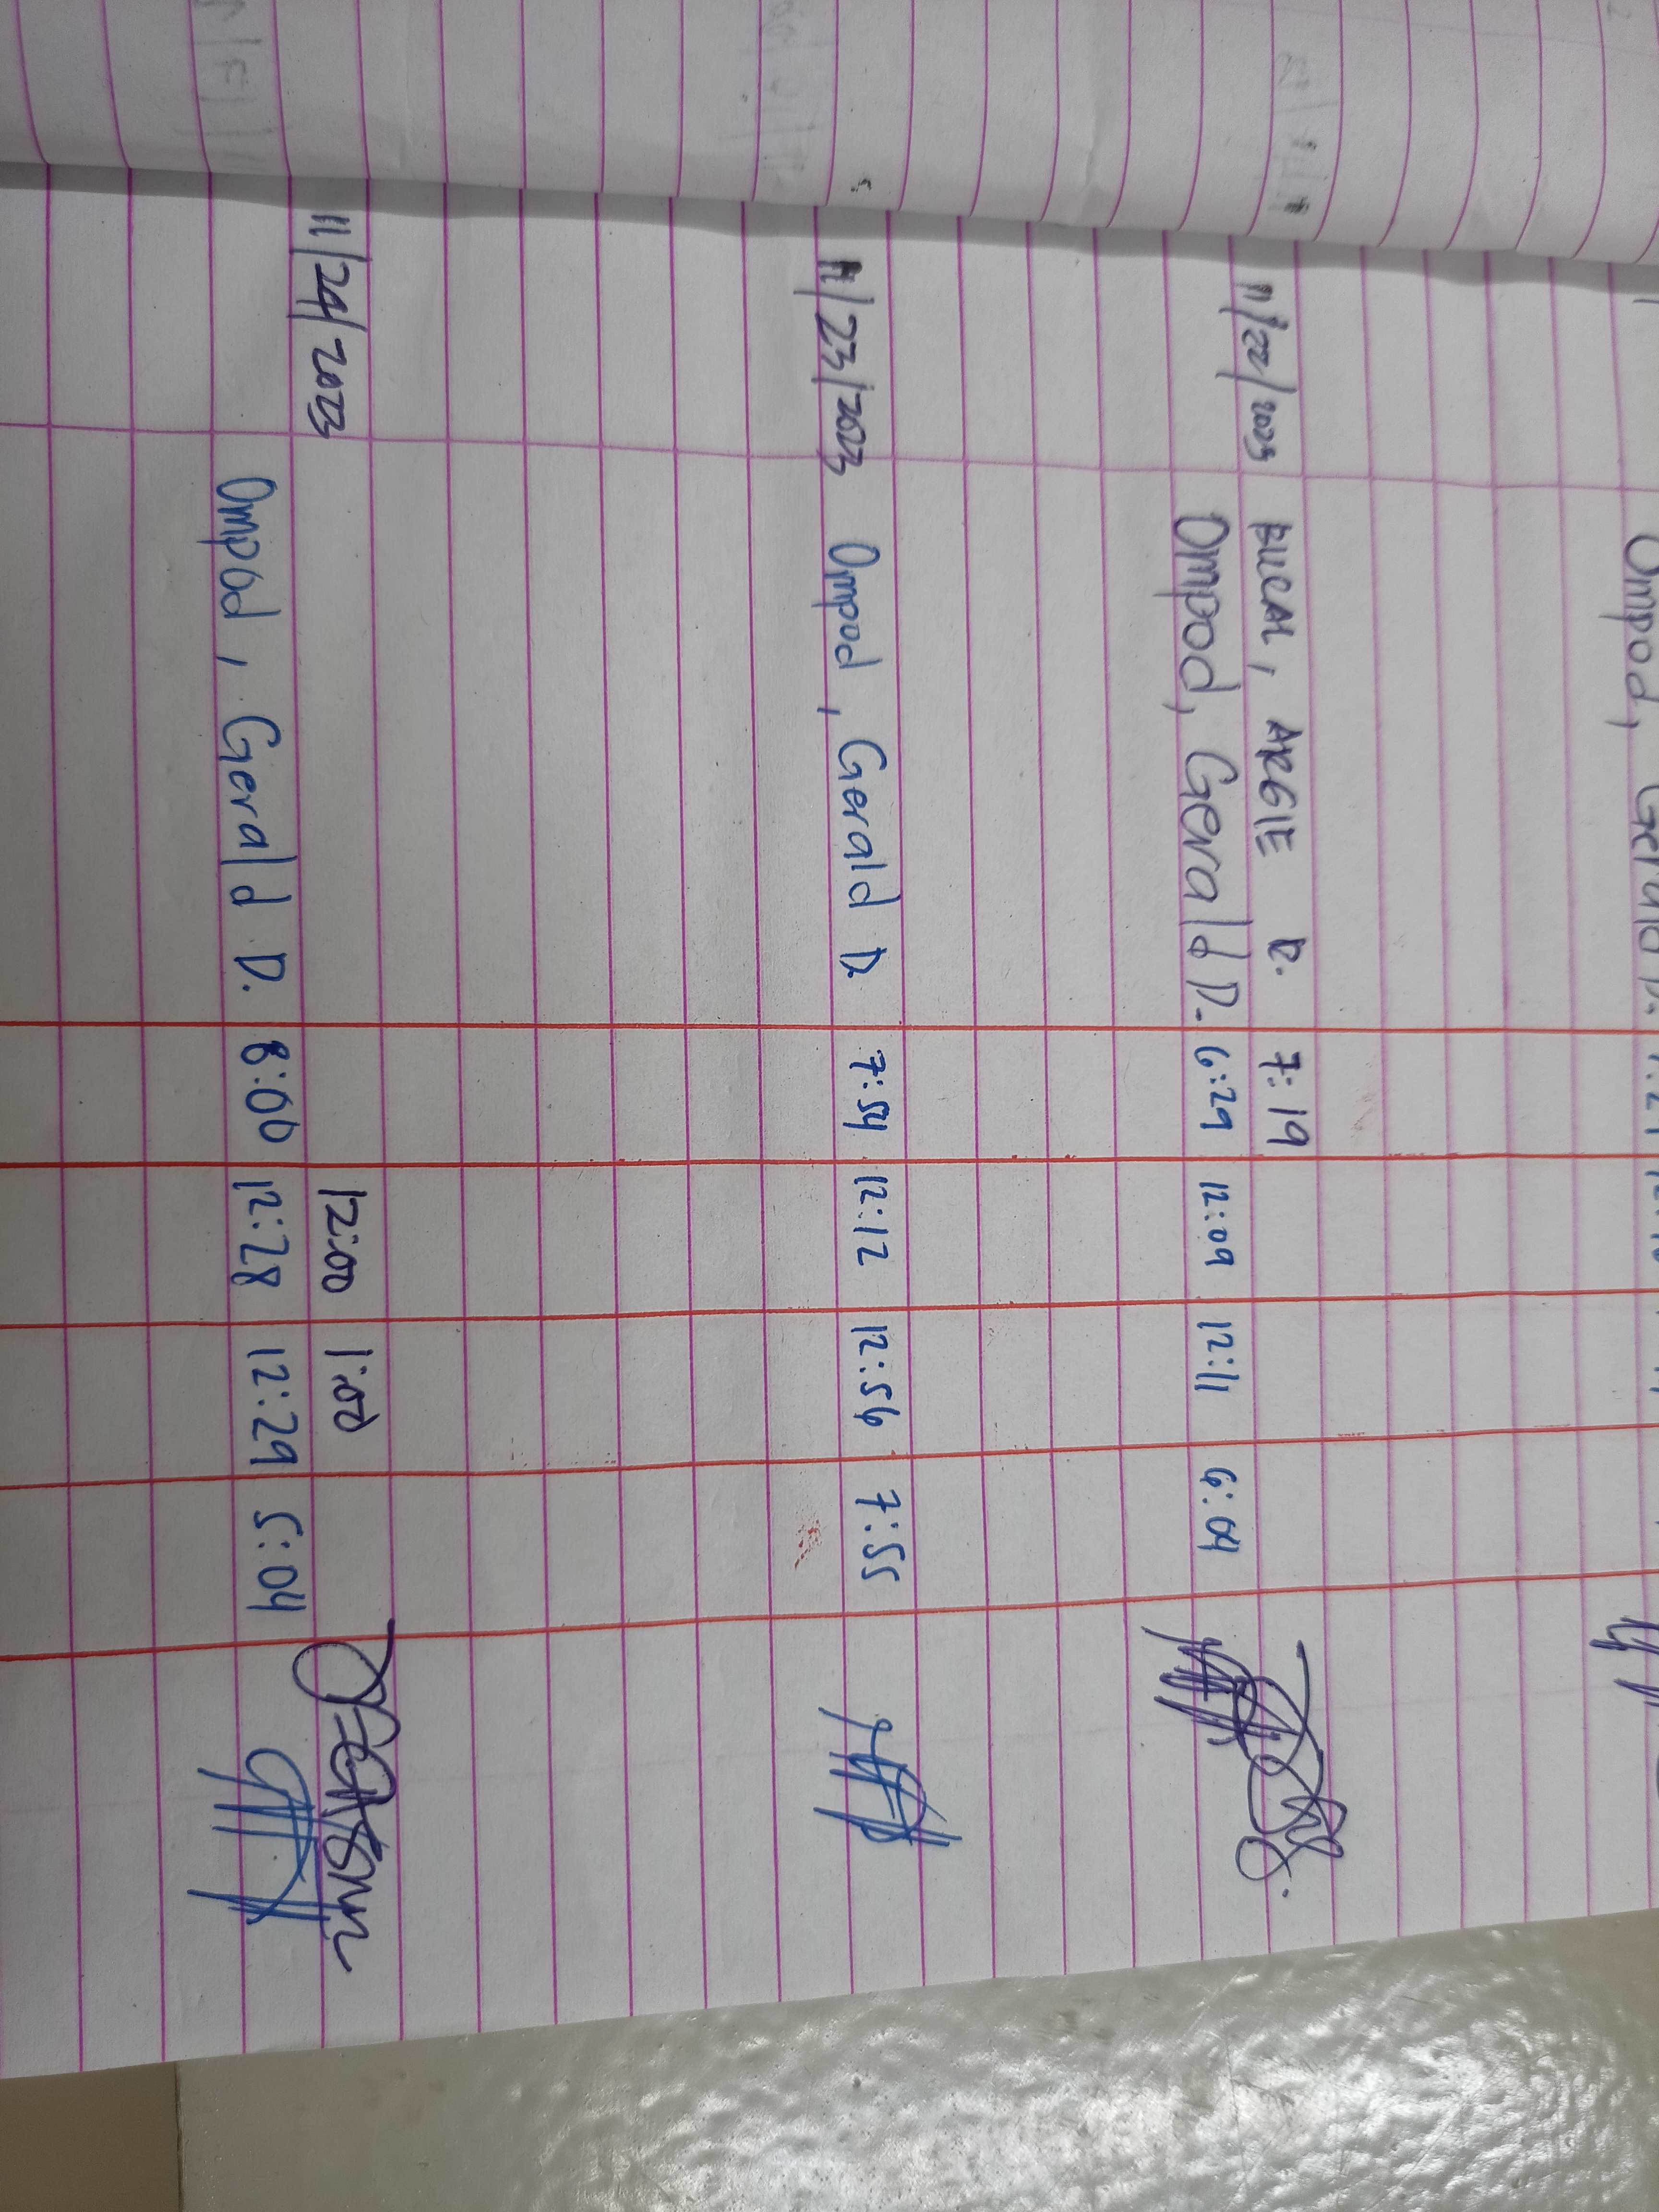 Ompod, Gerald D.
11/22/2023 BUCAL, ARGIE D. 7:19
Ompod, Gerald D. 6:29 12:09 12:11 6:04
11/23/2023 Ompod, Gerald D. 7:54 12:12 12:56 7:55
11/24/2023 12:00 1:00
Ompod, Gerald D. 8:00 12:28 12:29 5:04